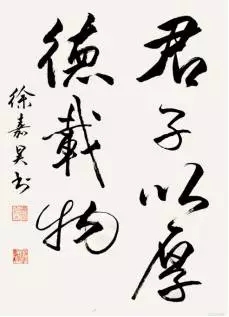 君子以厚
德載物
徐嘉昊书